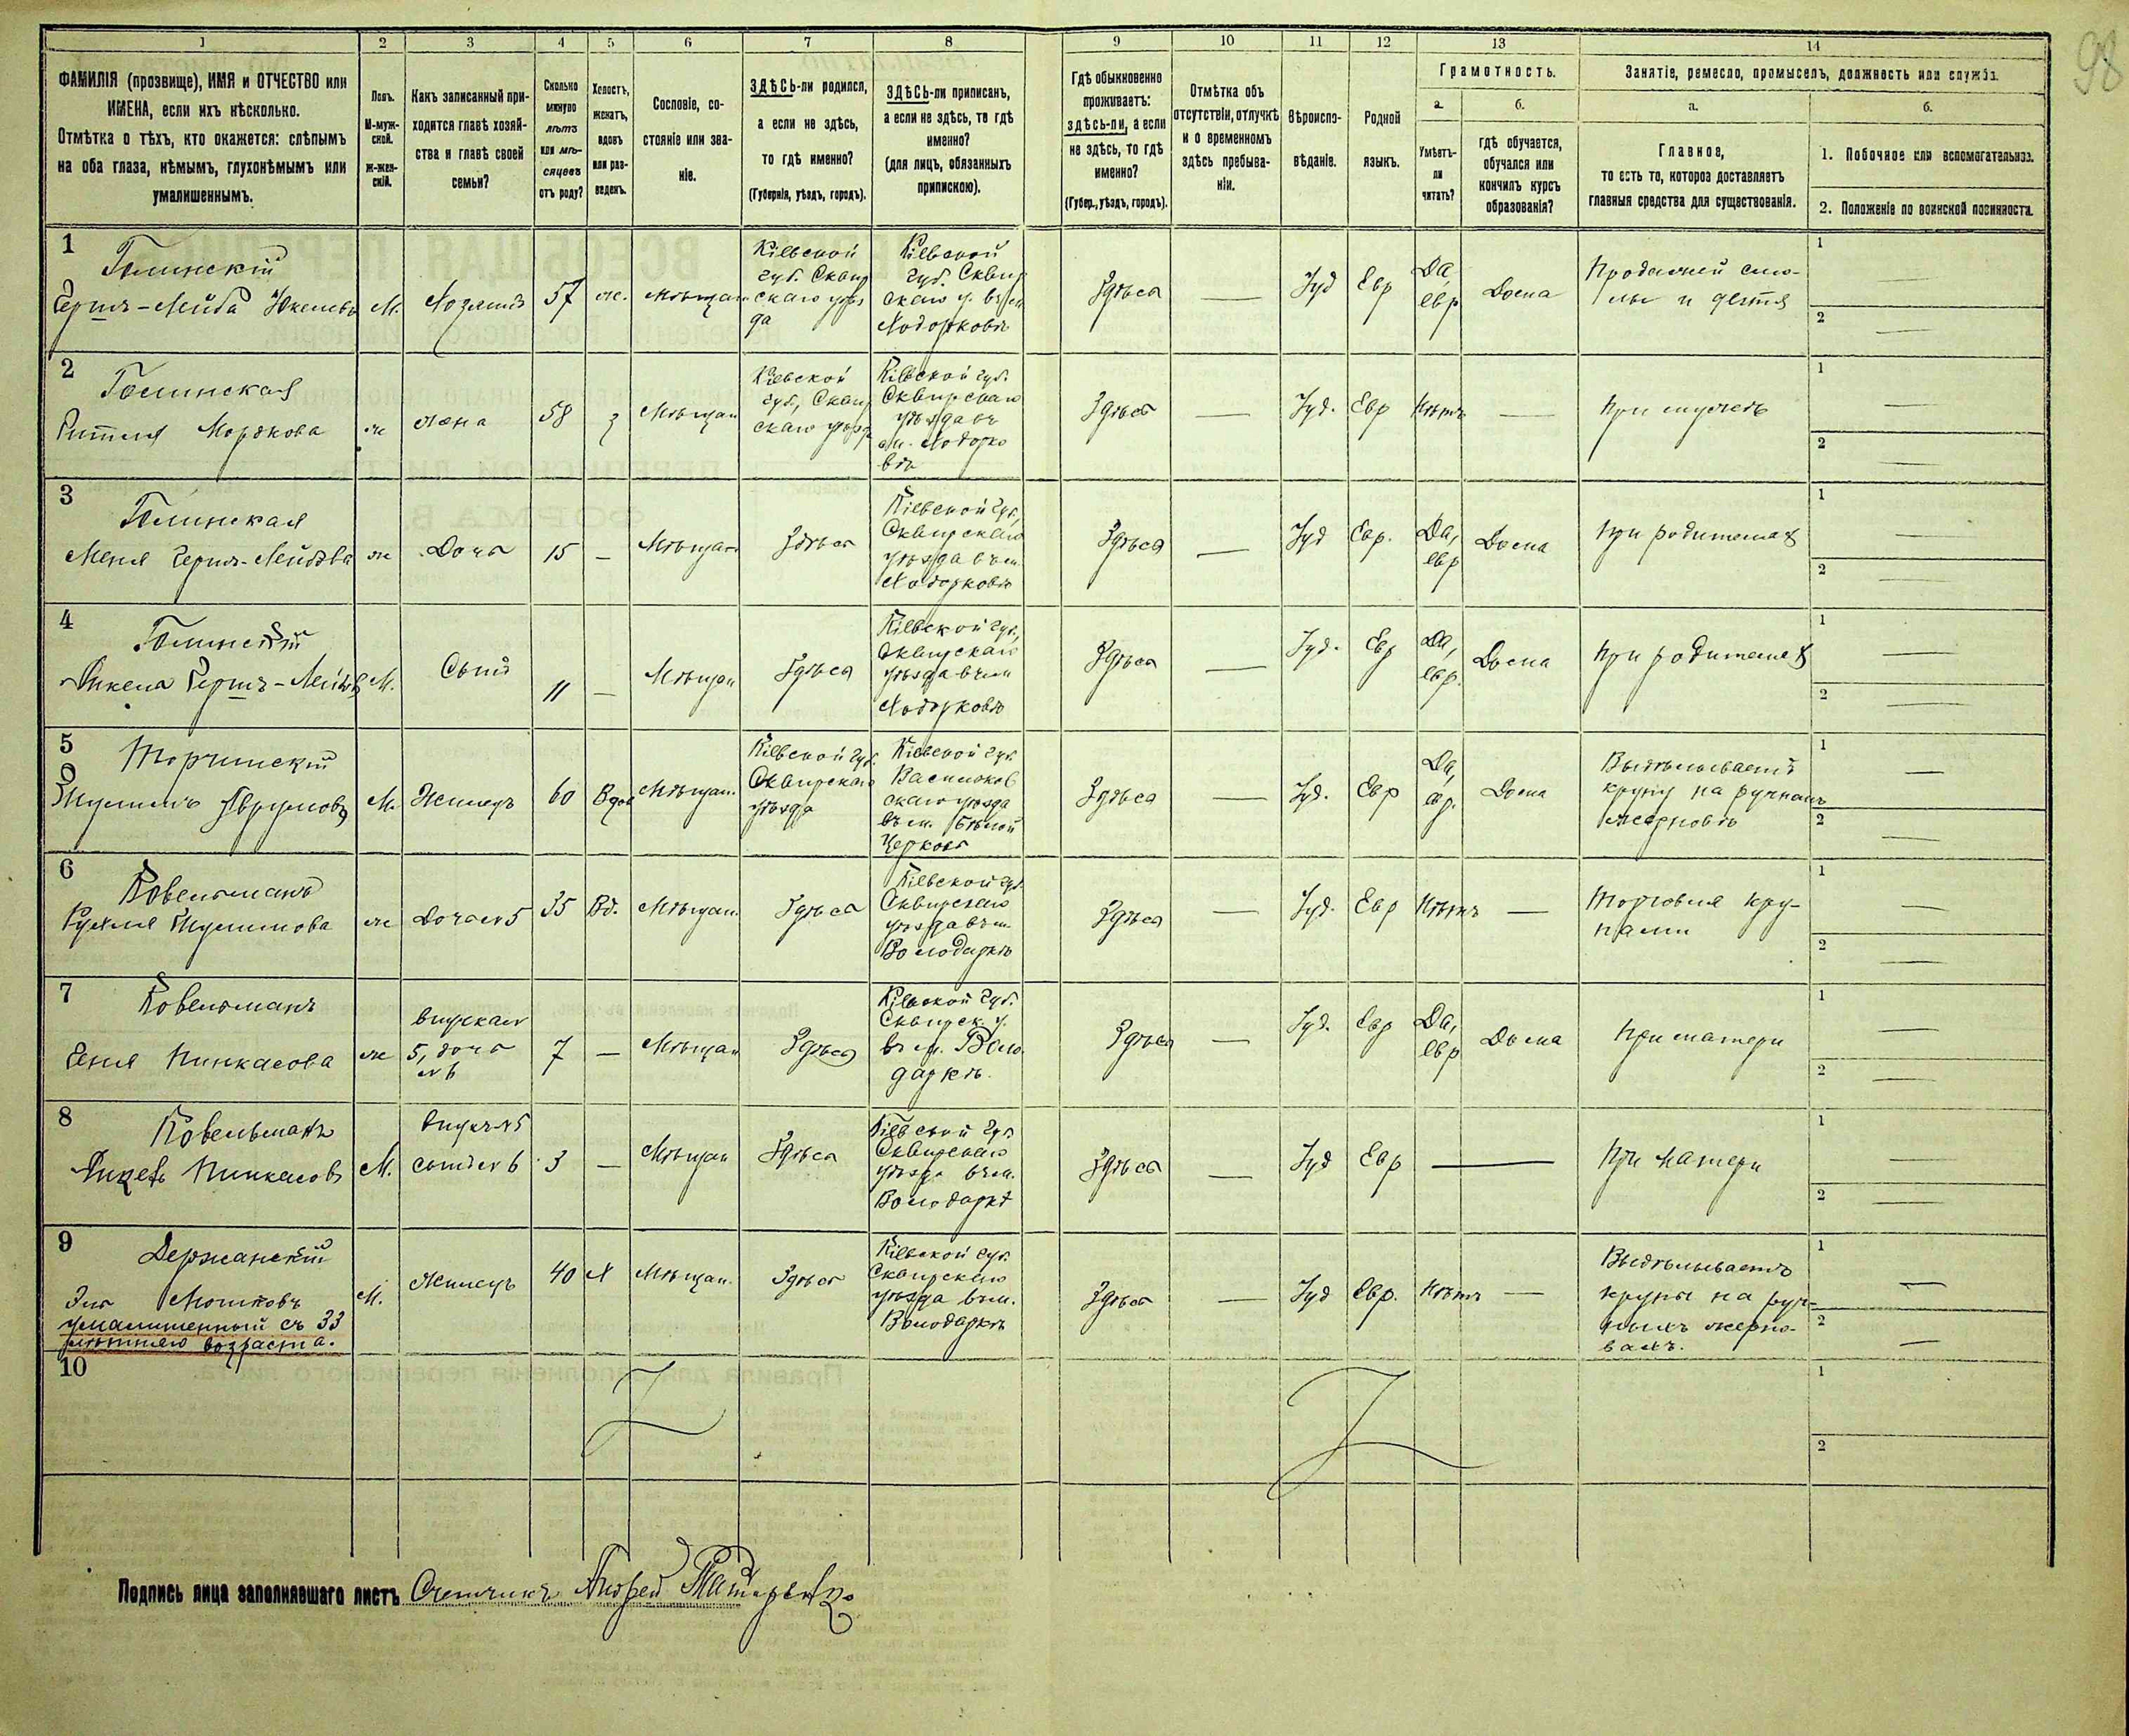 98
1 2 3 4 5 6 7 8 9 10 11 12 13 14
ФАМИЛІЯ (прозвище), ИМЯ и ОТЧЕСТВО или
ИМЕНА, если ихъ нѣсколько.
Отмѣтка о тѣхъ, кто окажется: слѣпымъ
на оба глаза, нѣмымъ, глухонѣмымъ или
умалишеннымъ.
Полъ.
М-муж-
ской.
ж-жен-
скій.
Какъ записанный при-
ходится главѣ хозяй-
ства и главѣ своей
семьи?
Сколько
минуло
лѣтъ
или мѣ-
сяцевъ
отъ роду?
Холостъ,
женатъ,
вдовъ
или раз-
веденъ.
Сословіе, со-
стояніе или зва-
ніе.
ЗДѢСЬ-ли родился,
а если не здѣсь,
то гдѣ именно?
(Губернія, уѣздъ, городъ).
ЗДѢСЬ-ли приписанъ,
а если не здѣсь, то гдѣ
именно?
(для лицъ, обязанныхъ
припискою).
Гдѣ обыкновенно
проживаетъ:
здѣсь-ли, а если
не здѣсь, то гдѣ
именно?
(Губер., уѣздъ, городъ).
Отмѣтка объ
отсутствіи, отлучкѣ
и о временномъ
здѣсь пребыва-
ніи.
Вѣроиспо-
вѣданіе.
Родной
языкъ.
Грамотность.
а.
Умѣетъ-
ли
читать?
б.
гдѣ обучается,
обучался или
кончилъ курсъ
образованія?
Занятіе, ремесло, промыселъ, должность или служба.
а.
Главное,
то есть то, которое доставляетъ
главныя средства для существованія.
б.
1. Побочное или вспомогательное.
2. Положеніе по воинской повинности.
1
Голинскій
Гершъ-Лейба
М.
Хозяинъ
57
ж.
мѣщан
Кіевской
губ. Сквир
скаго уѣз
да
Кіевской
губ. Сквир
скаго у. въ м
Ходорковѣ
Здѣсь
—
Іуд
Евр
Да,
евр
Дома
Продажей смо-
лы и дегтя
1 —
2 —
2
Голинская
Мордкова
ж
жена
58
з
Мѣщан
Кіевской
губ., Сквир
скаго уѣзд
Кіевской губ.
Сквирскаго
уѣзда въ
м. Ходорко
вѣ
Здѣсь
—
Іуд.
Евр
Нѣтъ
—
При мужѣ
1 —
2 —
3
Голинская
Меня Герш-Лейбова
ж
Дочь
15
—
Мѣщан
Здѣсь
Кіевской губ,
Сквирскаго
уѣзда въ м.
Ходорковѣ
Здѣсь
—
Іуд
Евр.
Да,
евр
Дома
При родителях
1 —
2 —
4
Голинскій
Герш-Лейб
М.
Сынъ
11
—
Мѣщан
Здѣсь
Кіевской губ,
Сквирскаго
уѣзда въ м
Ходорковѣ
Здѣсь
—
Іуд.
Евр
Да,
евр.
Дома
При родителях
1 —
2 —
5
Торчинскій
М.
Жилецъ
60
Вдов
Мѣщан.
Кіевской губ.
Сквирскаго
уѣзда
Кіевской губ.
Васильков
скаго уѣзда
въ м. Бѣлой
Церкви
Здѣсь
—
Іуд.
Евр
Да,
евр.
Дома
Выдѣлываетъ
крупу на ручномъ
жерновѣ
1 —
2 —
6
Ковельманъ
Рухля
ж
Дочь № 5
35
Вд.
Мѣщан.
Здѣсь
Кіевской губ.
Сквирскаго
уѣзда въ м.
Володаркѣ
Здѣсь
—
Іуд.
Евр
Нѣтъ
—
Торговля кру-
пами
1 —
2 —
7
Ковельманъ
Геня Пинкасова
ж
внучка №
5, дочь
№ 6
7
—
Мѣщан
Здѣсь
Кіевской губ.
Сквирск. у.
въ м. Воло-
даркѣ.
Здѣсь
—
Іуд.
Евр
Да,
евр
Дома
При матери
1 —
2 —
8
Ковельманъ
Пинкасовъ
М.
внукъ № 5
сынъ № 6
3
—
Мѣщан
Здѣсь
Кіевской губ.
Сквирскаго
уѣзда въ м.
Володаркѣ
Здѣсь
—
Іуд
Евр
—
При матери
1 —
2 —
9
Держанскій
Эля Мошковъ
умалишенный съ 33
лѣтняго возраста.
М.
Жилецъ
40
Х
Мѣщан.
Здѣсь
Кіевской губ.
Сквирскаго
уѣзда въ м.
Володаркѣ
Здѣсь
—
Іуд
Евр.
Нѣтъ
—
Выдѣлываетъ
крупы на руч-
ныхъ жерно-
вахъ.
1 —
2 —
10
1
2
Подпись лица заполнявшаго листъ Счетчикъ Андрей